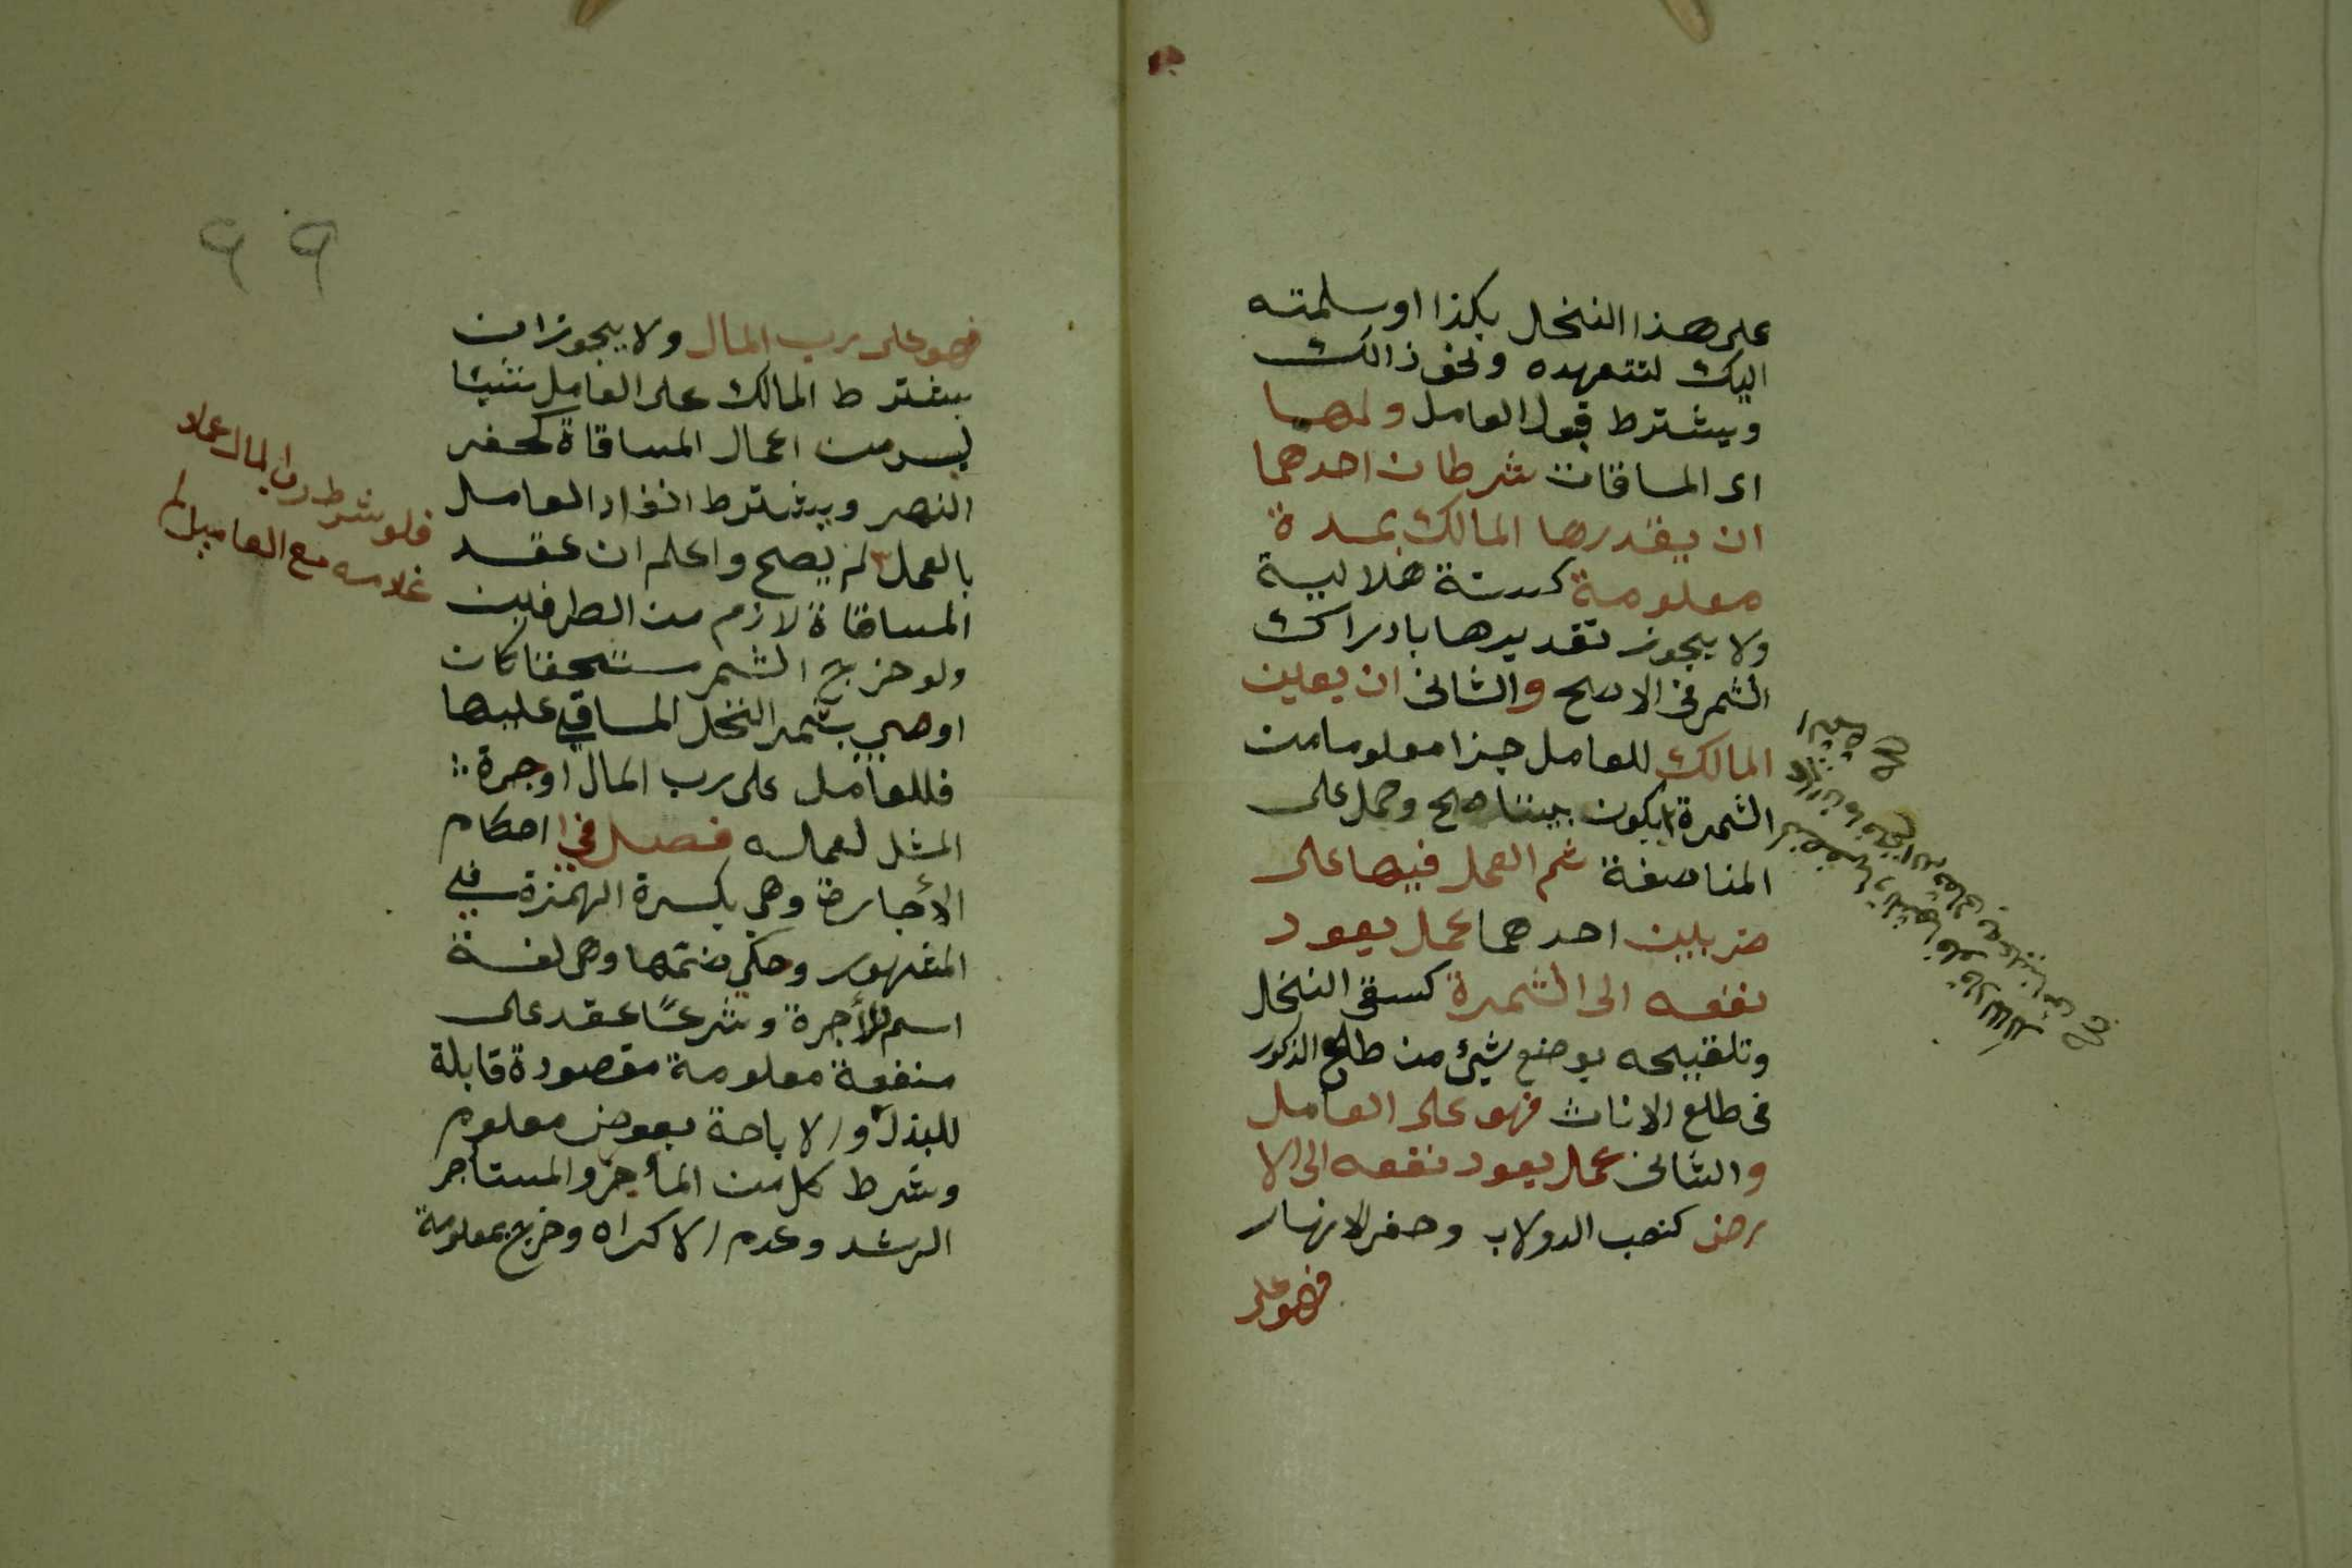 على هذا النخل بكذا او سلمته
اليك لتتعهده ونحو ذالك
ويشترط قبول العامل ولها
اى المساقات شرطان احدهما
ان يقدرها المالك بمدة
معلومة كسنة هلالية
ولا يجوز تقديرها بادراك
الثمر فى الاصح والثانى ان يعين
المالك للعامل جزا معلوما من
الثمرة يكون بيننا صح وحمل على
المناصفة ثم العمل فيها على
ضربين احدهما عمل يعود
نفعه الى الثمرة كسقى النخل
وتلقيحه بوضع شيئ من طلع الذكور
فى طلع الاناث فهو على العامل
والثانى عمل يعود نفعه الى الا
رض كنصب الدولاب وحفر الانهار
فهو على
٩٩
فهو على رب المال ولا يجوز ان
يشترط المالك على العامل شيئا
ليس من اعمال المساقاة كحفر
النهر ويشترط انفراد العامل
بالعمل لم يصح واعلم ان عقد
المساقاة لازم من الطرفين
ولو خرج الثمر مستحقا كان
اوصى بثمر النخل المساقى عليها
فللعامل على رب المال اوجرة
المثل لعمله فصل فى احكام
الأجارة وهي بكسرة الهمزة في
المشهور وحكي ضمها وهى لغة
اسم للأجرة وشرعًا عقد على
منفعة معلومة مقصودة قابلة
للبذل والاباحة بعوض معلوم
وشرط كل من المأجر والمستأجر
الرشد وعدم الاكراه وخرج بمعلومة
فلو شرط رب المال عمل
غلامه مع العامل